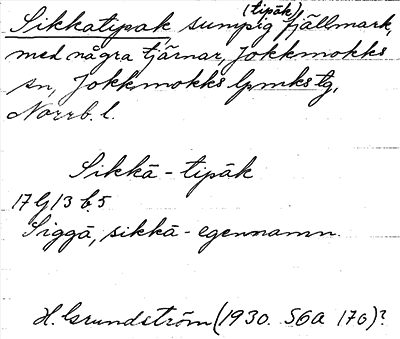 (tipåk)
Sikkatipak, sumpig fjällmark,
med några tjärnar, Jokkmokks
sn, Jokkmokks lpmks tg,
Norrb. l.
Sikkā - tipāk
17 G 13 b.5
Siggā, sikkā - egennamn.
H. Grundström (1930. S6a 170)?